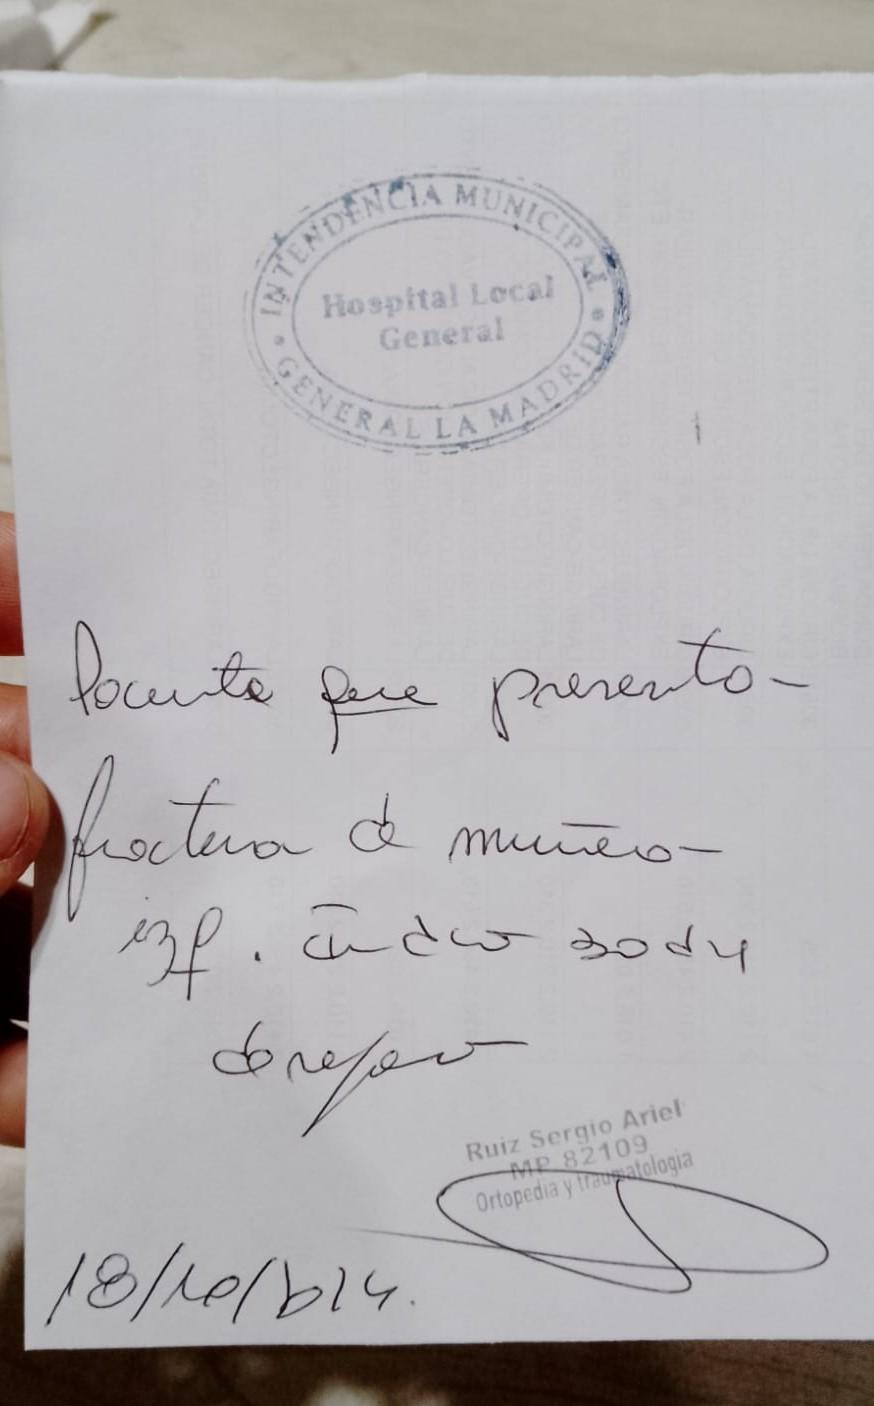 INTENDENCIA MUNICIPAL
Hospital Local
General
GENERAL LA MADRID
Paciente que presenta
fractura de muñeca
izq. 30 dy
de reposo
Ruiz Sergio Ariel
MP 82109
Ortopedia y traumatologia
18/10/